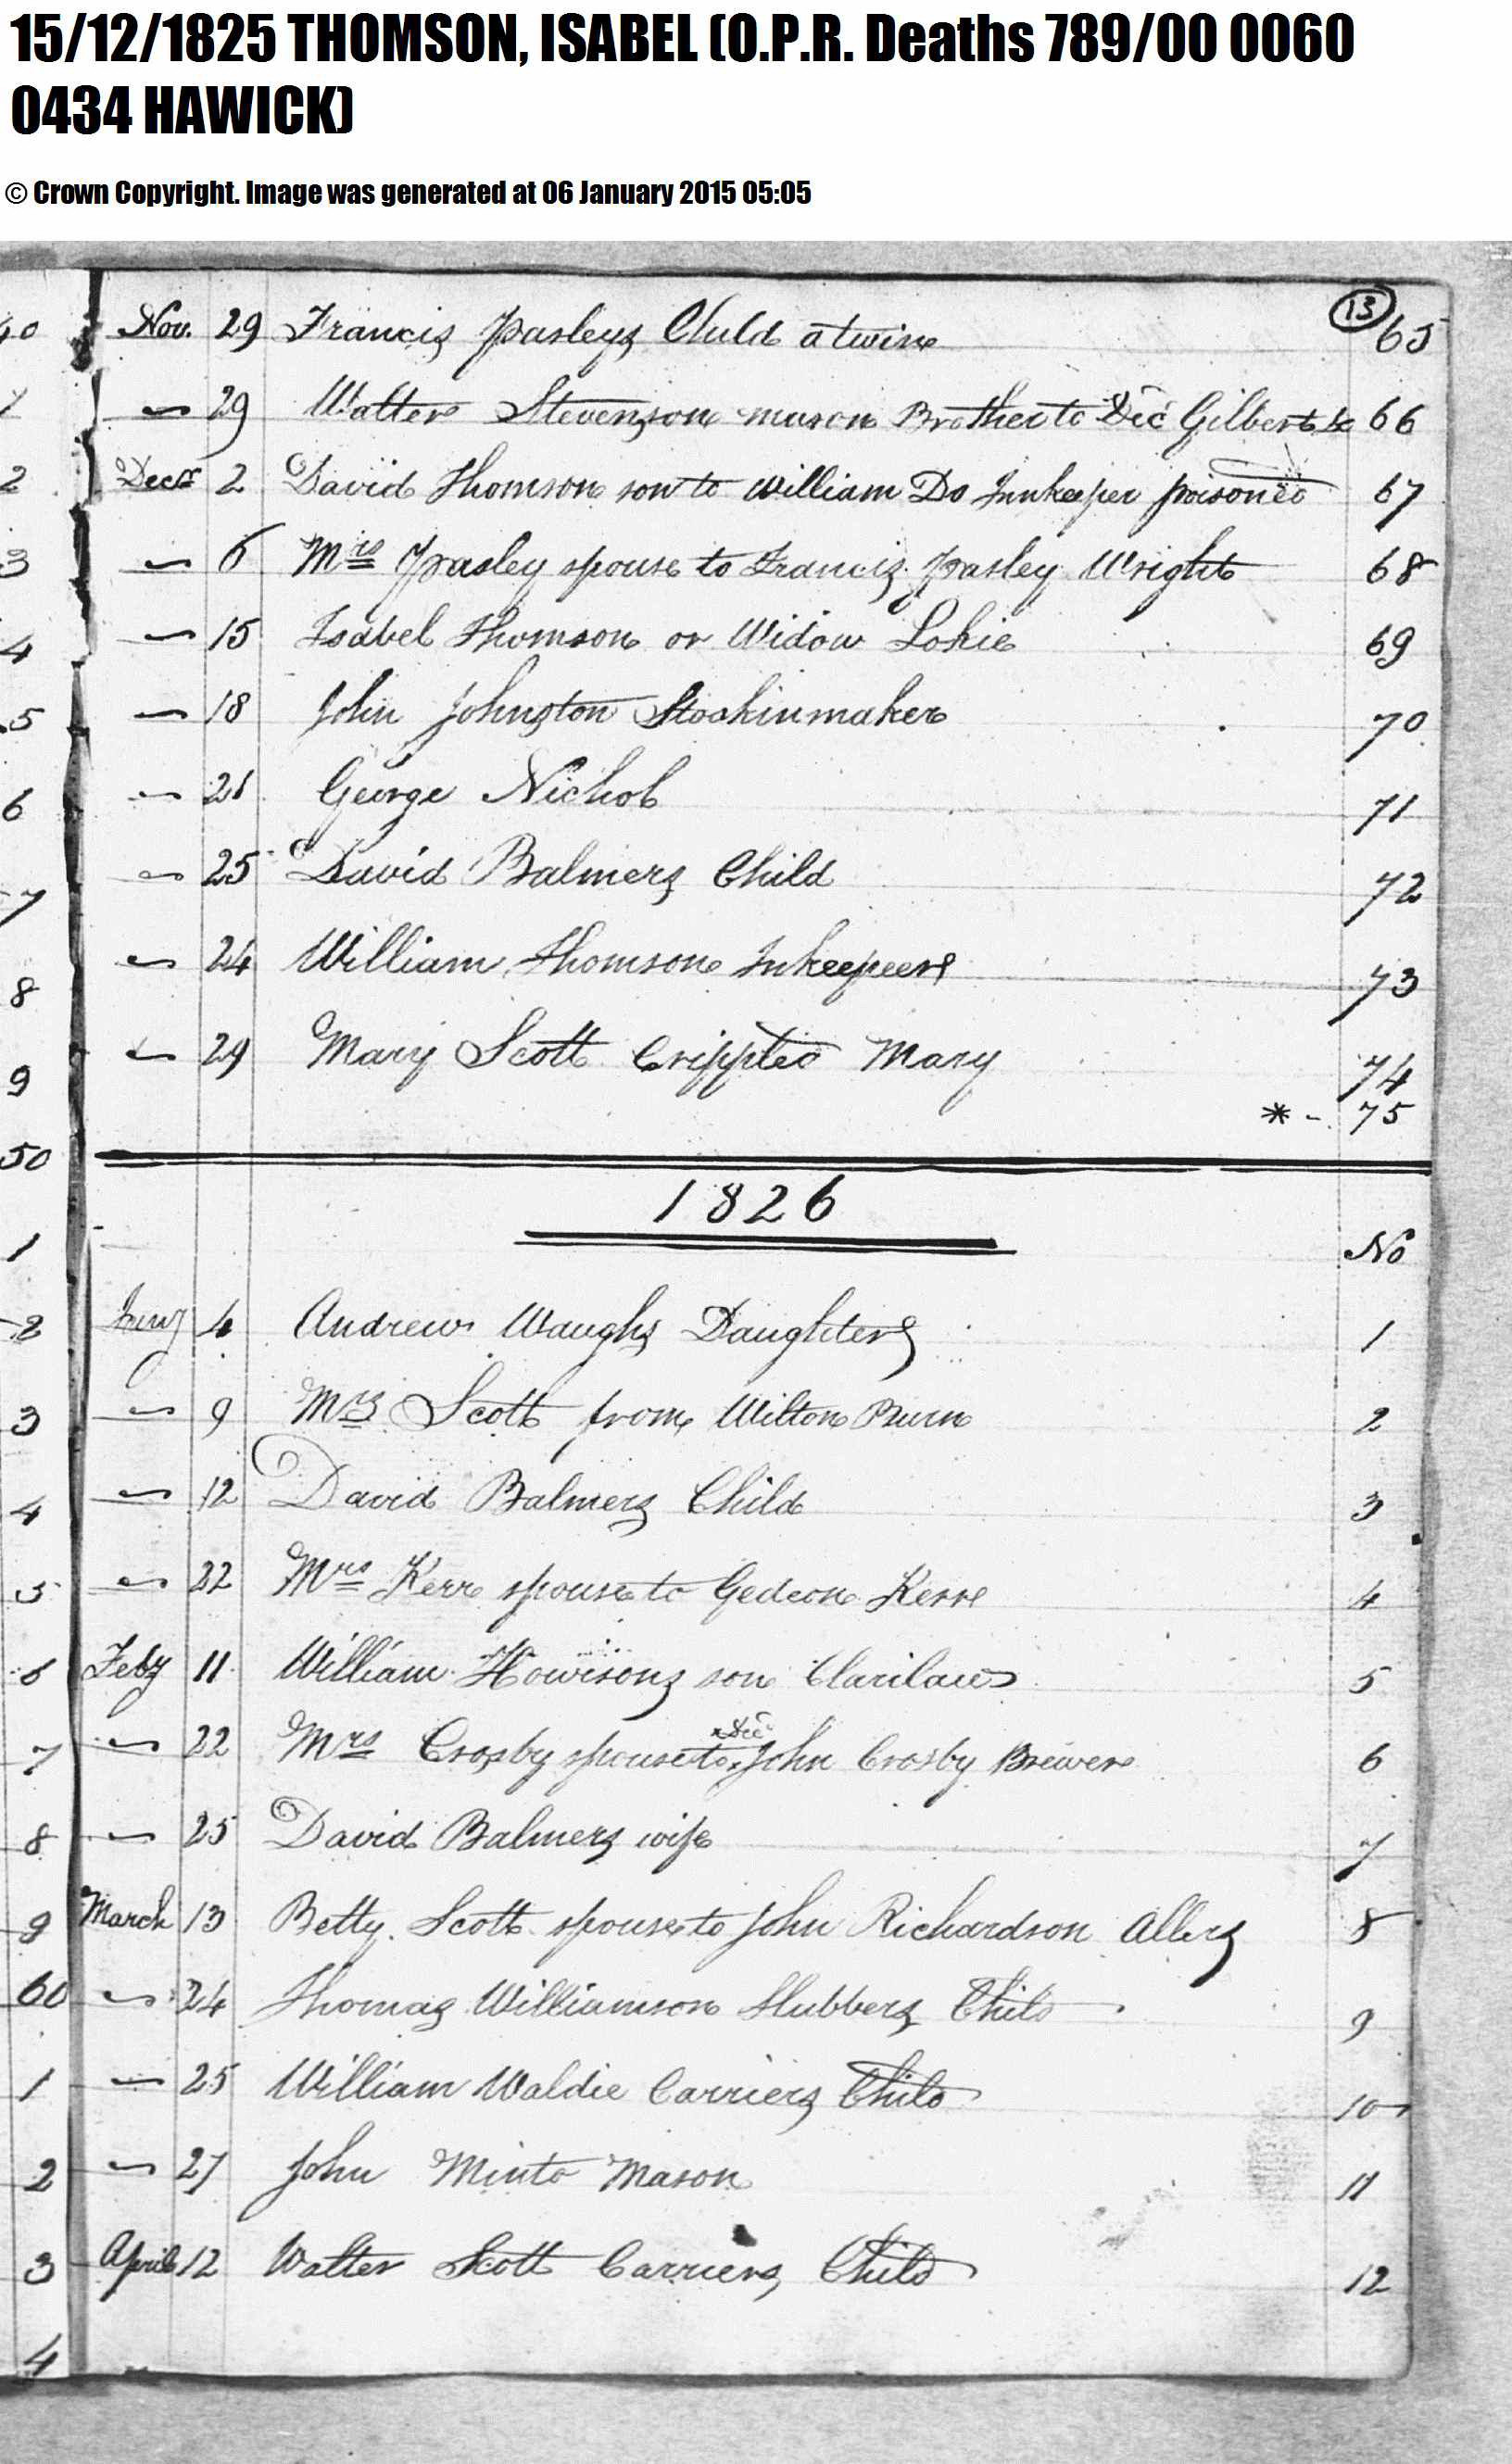 15/12/1825 THOMSON, ISABEL (O.P.R. Deaths 789/00 0060
0434 HAWICK)
© Crown Copyright. Image was generated at 06 January 2015 05:05
13
Nov. 29 Francis Pasleys Child a twin 65
29 Walter Stevenson mason Brother to Dec Gilbert &c 66
Decr 2 David Thomson son to William Do Innkeeper poisoned 67
6 Mrs Pasley spouse to Francis Pasley Wright 68
15 Isabel Thomson or Widow Lokie 69
18 John Johnston Stockinmaker 70
21 George Nichol 71
25 David Balmers Child 72
24 William Thomson Inkeeper 73
29 Mary Scott Cripped Mary 74
* - 75
1826
No
4 Andrew Waughs Daughter 1
9 Mrs Scott from Wilton Burn 2
12 David Balmers Child 3
22 Mrs Kerr spouse to Gedeon Kerr 4
Feby 11 William Howisons son Clarilaw 5
22 Mrs Crosby spouse to Dec John Crosby Brewer 6
25 David Balmers wife 7
March 13 Betty Scott spouse to John Richardson Allers 8
24 Thomas Williamson Slubbers Child 9
25 William Waldie Carriers Child 10
27 John Minto Mason 11
April 12 Walter Scott Carriers Child 12
40
1
2
3
4
5
6
7
8
9
50
1
2
3
4
5
6
7
8
9
60
1
2
3
4